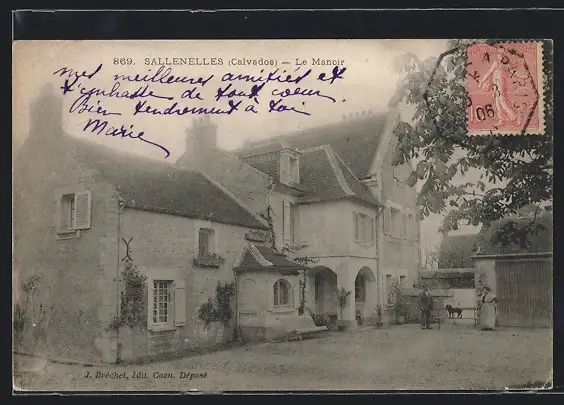 869. SALLENELLES (Calvados) — Le Manoir
mes meilleures amitiés et
t'embrasse de tout coeur.
Bien tendrement à toi
Marie
J. Bréchet, édit. Caen. Déposé